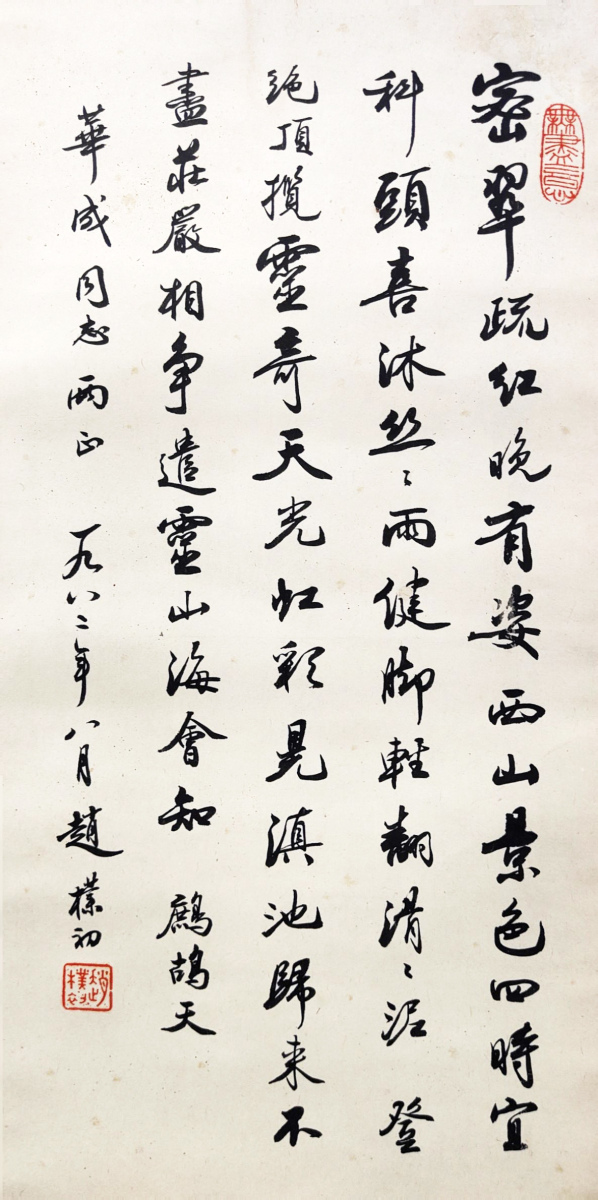 密翠疏红晚有姿西山景色四時宜
科頭喜沐丝〻雨健脚軽翻滑〻泥 登
绝頂攬靈奇天光虹彩晃滇池歸来不
盡莊嚴相争遣靈山海會知 鷓鴣天
華成同志两正 一九八二年八月 趙樸初
無盡意
趙樸初